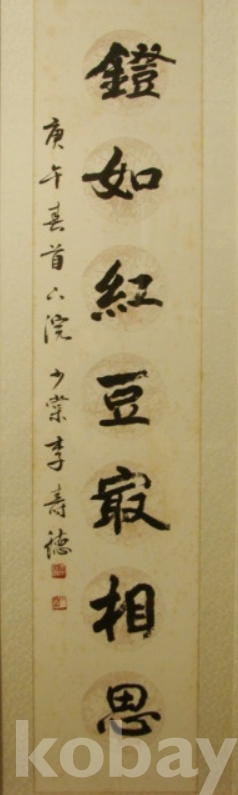 鐙如紅豆㝡相思
庚午春首下浣 少棠李壽德
kobay